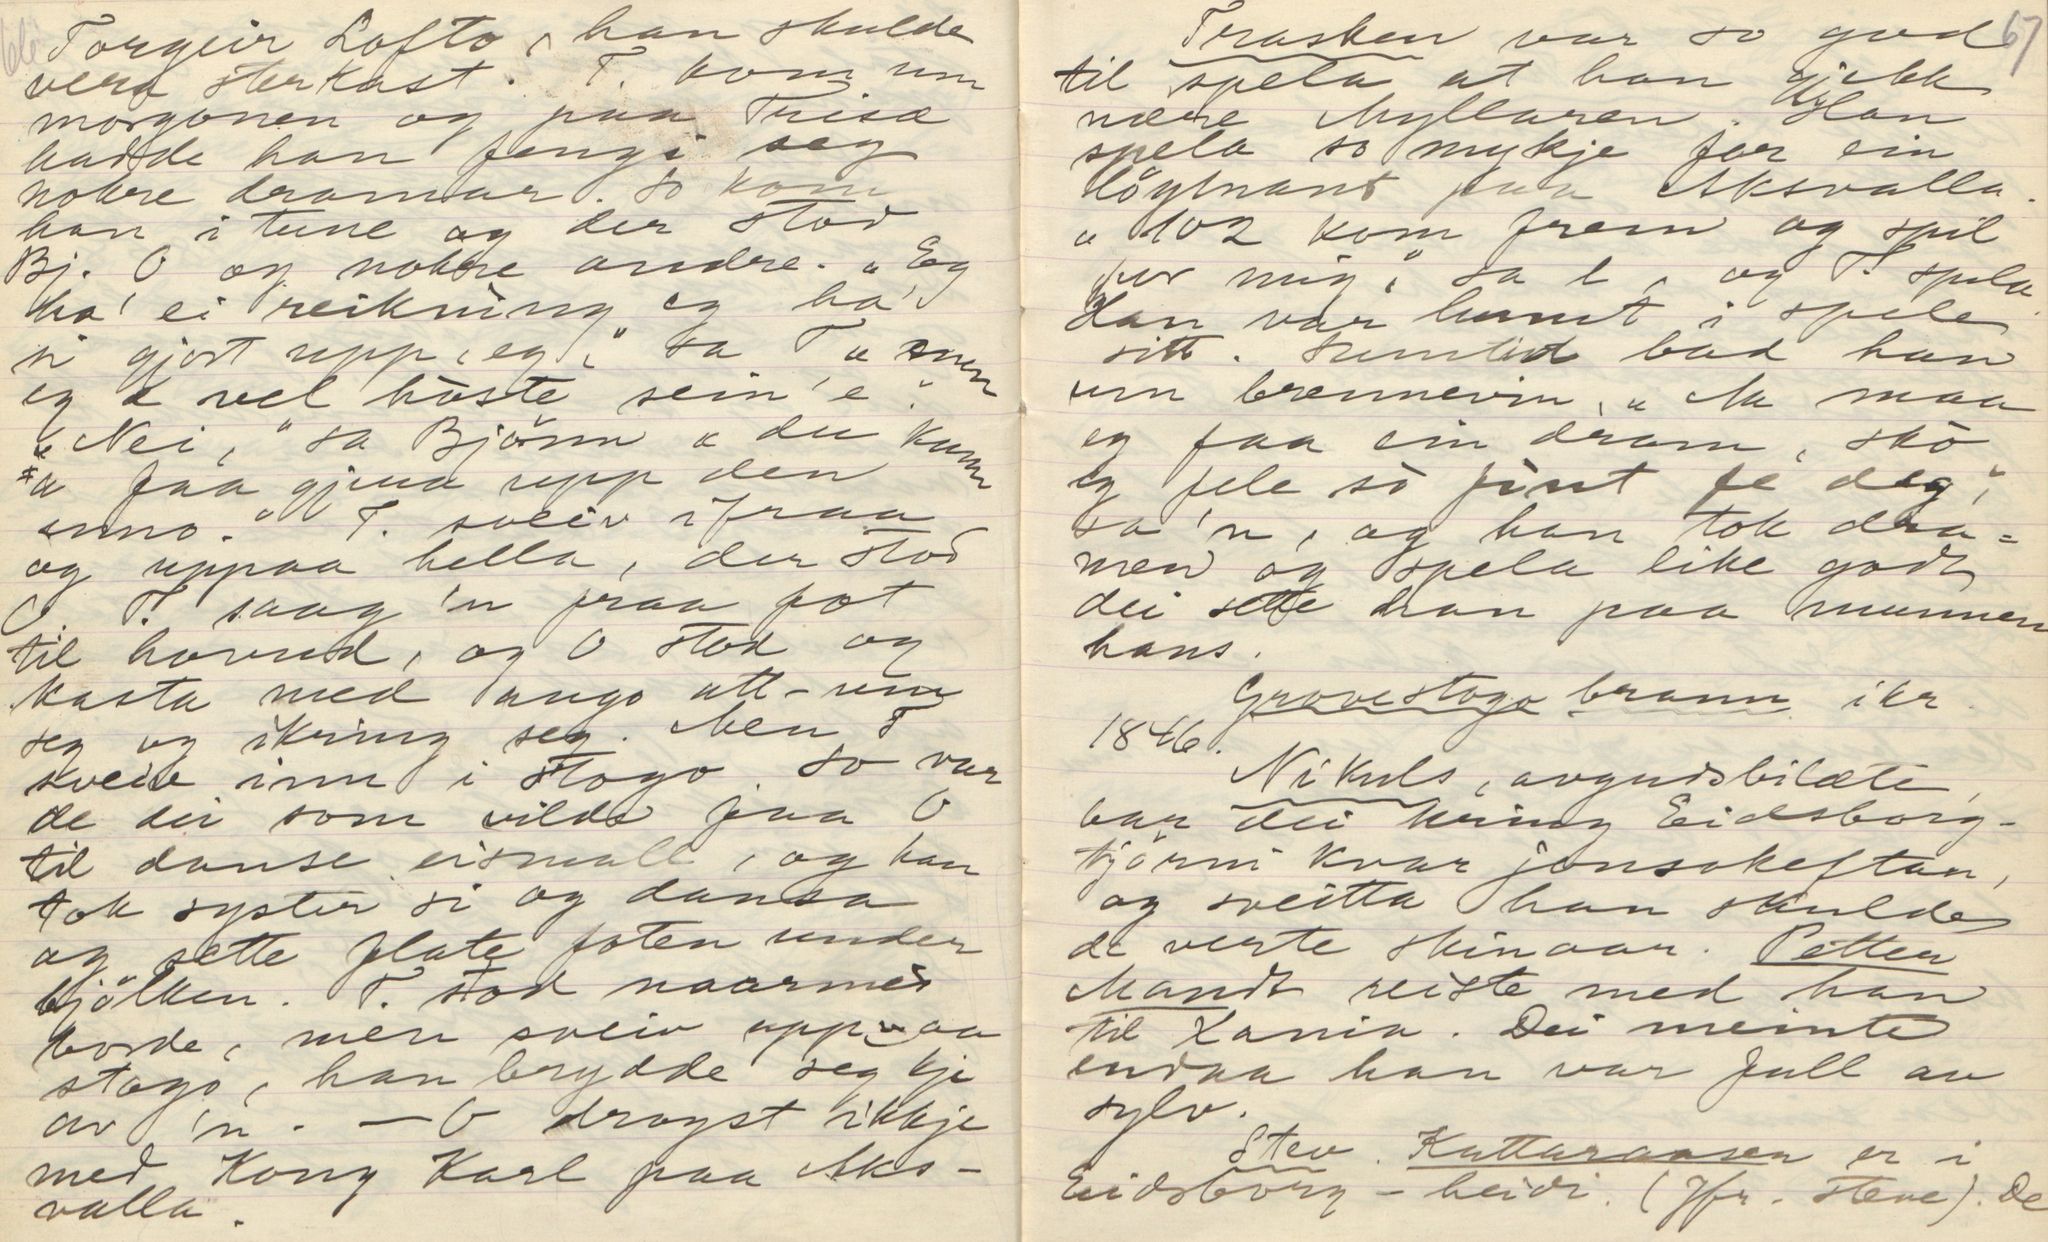 66
Torgeir Lofto, han skulde
vera sterkast. T. kom um
morgonen og paa Trisæ
hadde han fengi seg
nokre dramar. So kom
han i tune og der stod
Bj. O og nokre andre. „Eg
ha' ei reikning eg ha'
'i gjort upp, eg," sa T „som
eg æ vel høste sein'e."
„Nei," sa Björnn „du kunn
faa gjera upp den
enno." T. sveiv ifraa
og uppaa hella, der stod
O T. saag 'n fraa fot
til hovud, og O stod og
kasta med augo att-um
seg og ikring seg. Men T
sveiv inn i stogo so var
de dei som vilde faa O
til danse eismall, og han
tok syster si og dansa
og sette flate foten under
bjölken. T. stod naarmes
borde, men sveiv uppaa
stogo, han brydde seg kje
av 'n. — O drogst ikkje
med Kong Karl paa Aks-
valla.
67
Trasken var so god
til spela at han gjekk
nære Myllaren. Han
spela so mykje for ein
löytnant paa Aksvalla.
„102 kom frem og spil
for mig," sa l, og T. spela.
Han var lunut i spele
sitt. Sumtid bad han
um brennevin, „Aa maa
eg faa ein dram, sko
eg fele so fint fe deg",
sa 'n, og han tok dra-
men og spela like godt
dei sette han paa munnen
hans.
Grovestogo brann ikr.
1846.
Nikuls, avgudsbilæte,
bar dei kring Eidsborg-
tjörni kvar jonsokeftan,
og sveitta han skulde
de verte skinaar. Petter
Mandt reiste med han
til Kania. Dei meinte
endaa han var full av
sylv.
Stev. Kattaraasen er i
Eidsborg-heidi. (Jfr. steve). De